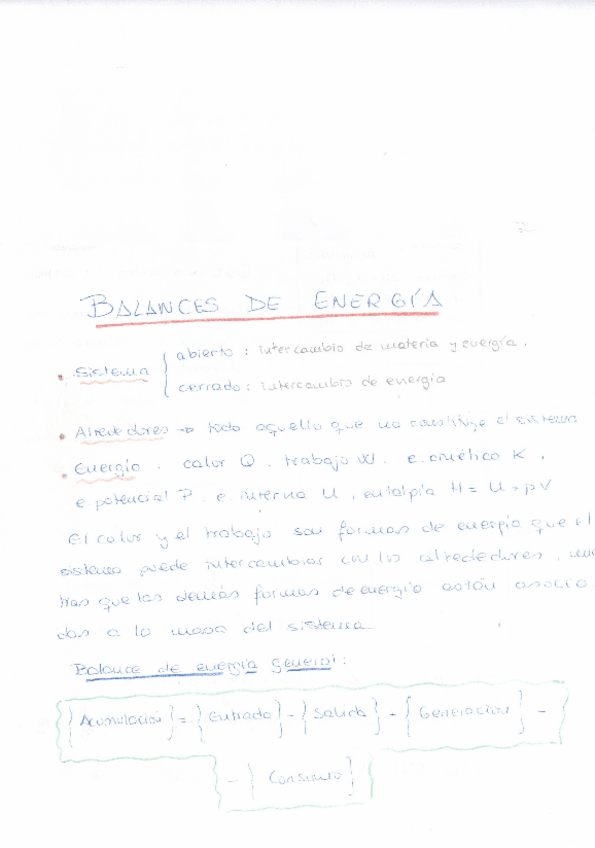 BALANCES DE ENERGÍA
abierto : intercambio de materia y energía.
• Sistema
cerrado : intercambio de energía
• Alrededores → todo aquello que no constituye el sistema
• Energía . calor Q . trabajo W . e. cinética K ,
e potencial P . e. interna U , entalpía H = U + pV
El calor y el trabajo son formas de energía que el
sistema puede intercambiar con los alrededores , mien
tras que las demás formas de energía están asocia
das a la masa del sistema
Balance de energía general :
{Acumulación} = {Entrada} - {Salida} + {Generación} -
- {Consumo}